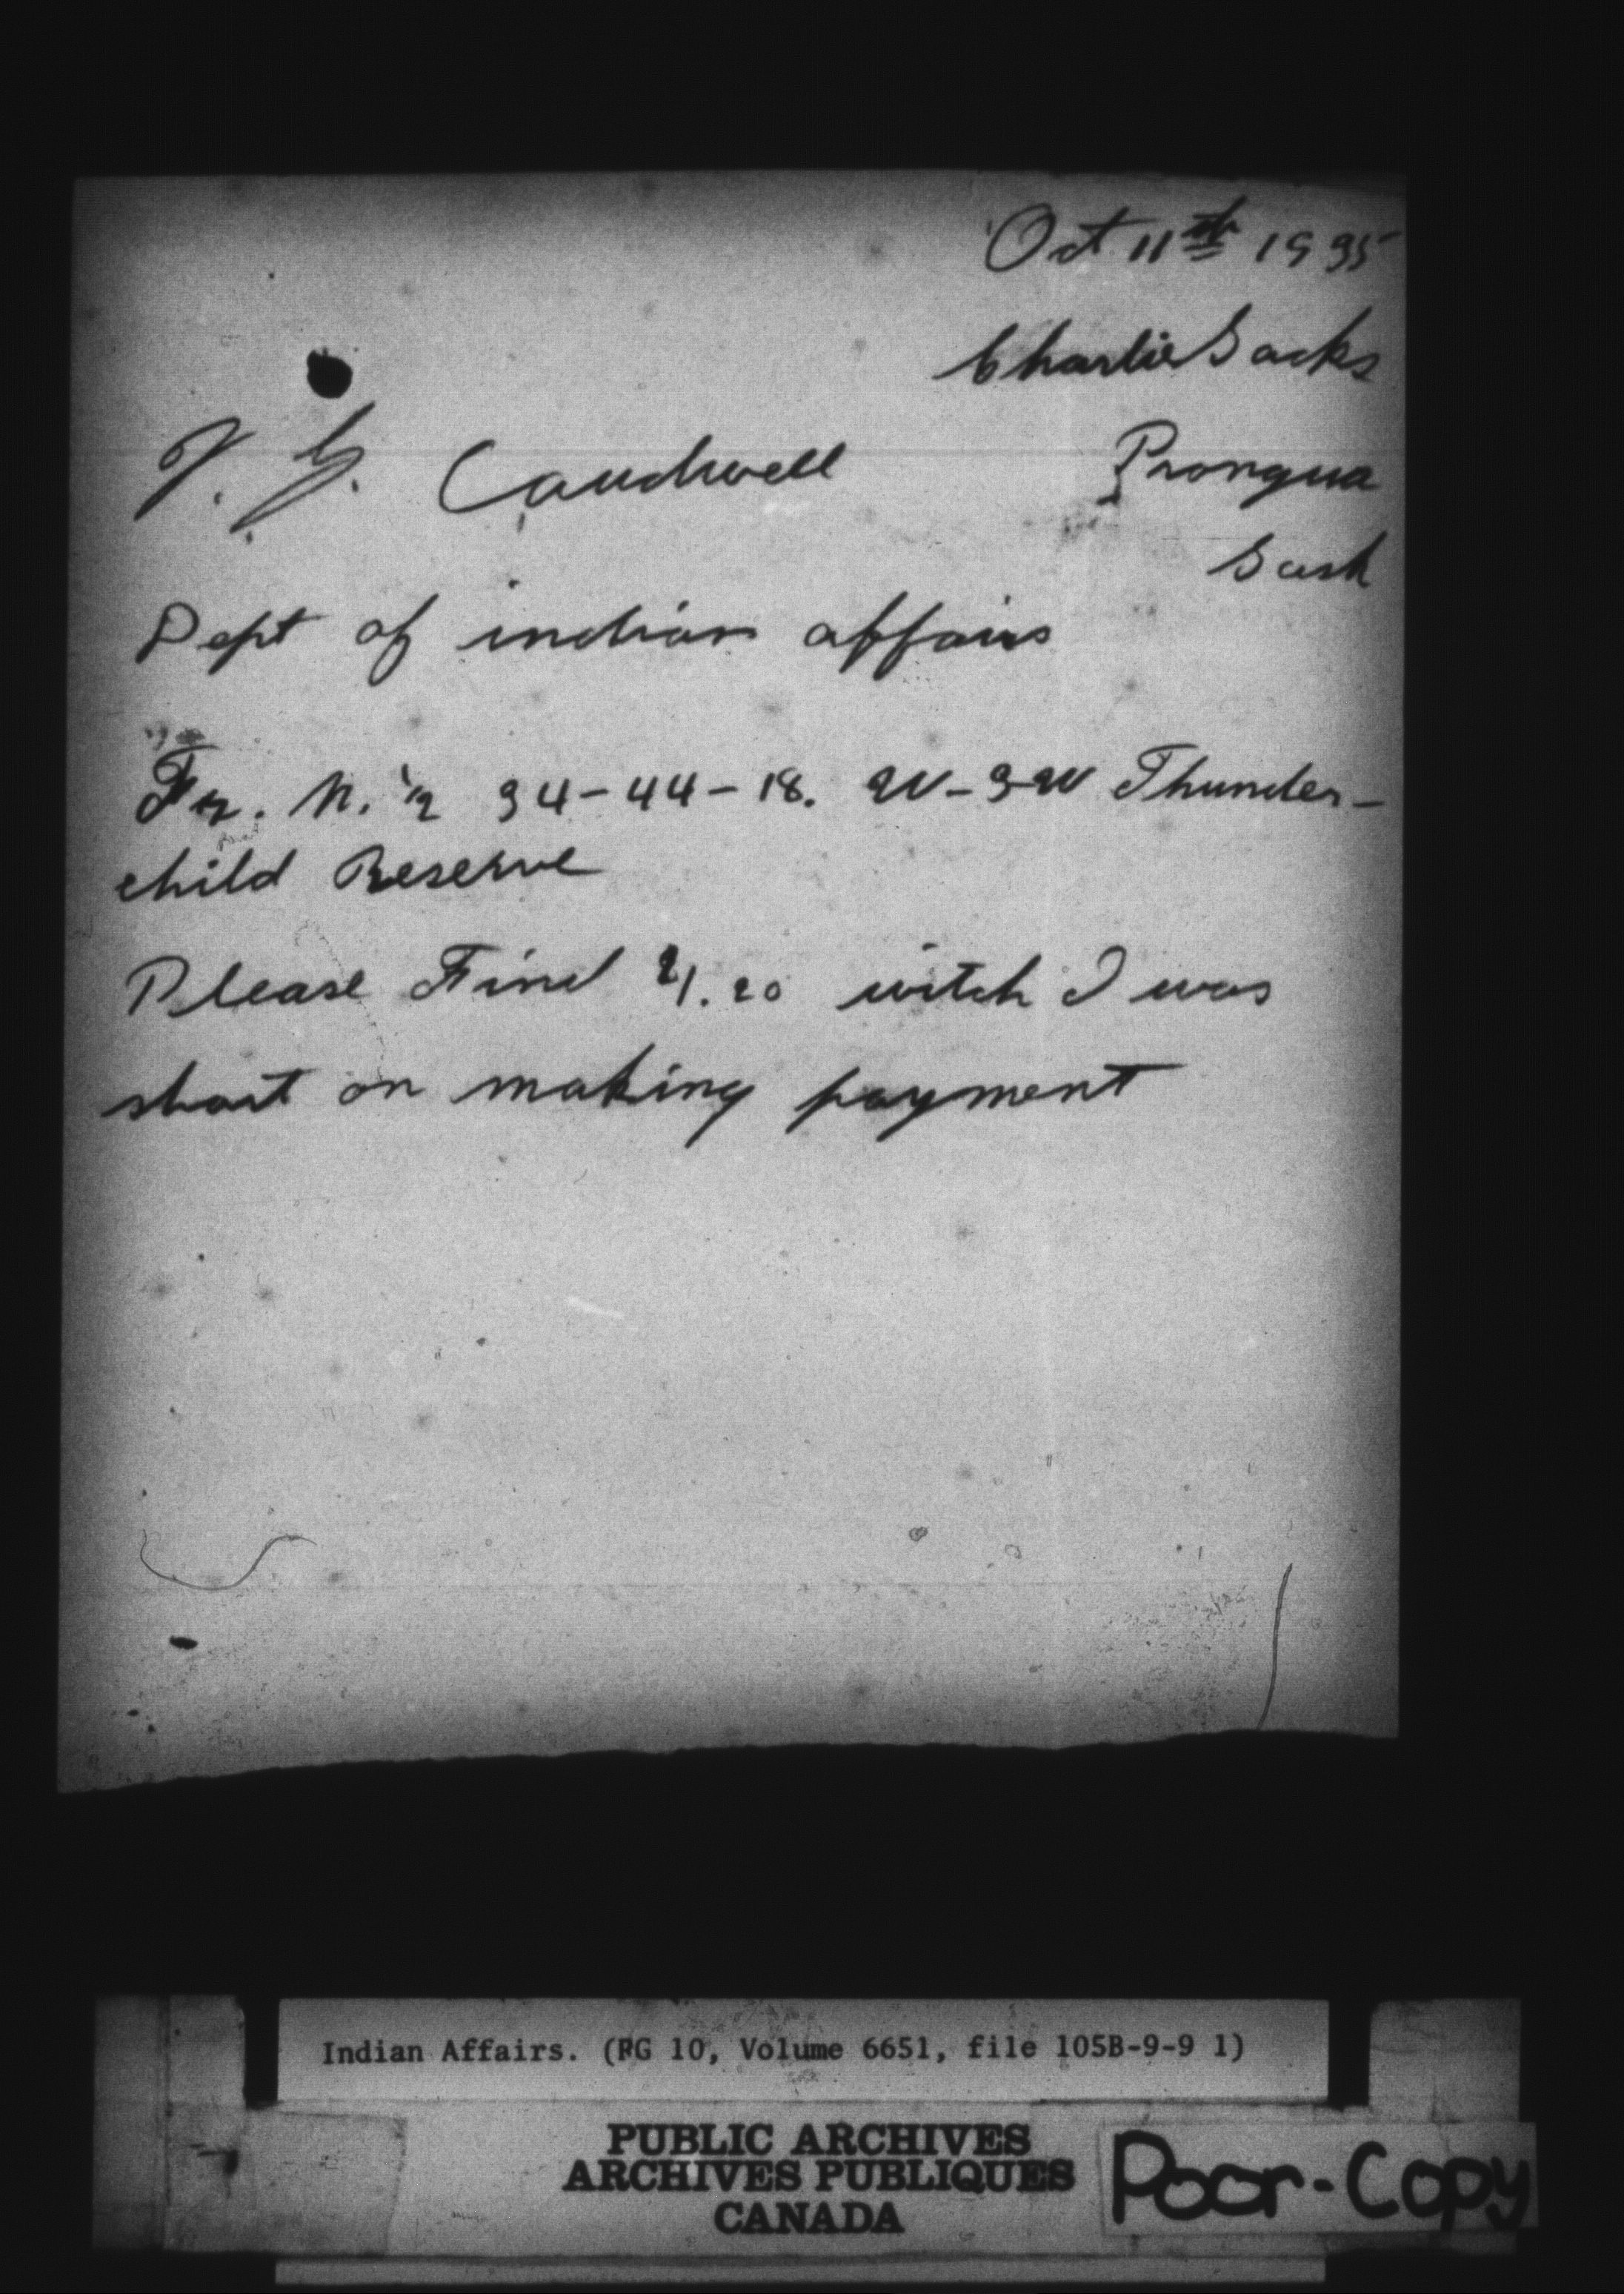 Oct 11th 1935
Charlie Sacks
J. G. Caudwell
Pronqua
Sask
Dept of indian affairs
Fr. N. 1/2 34-44-18. W-3-W Thunder-
child Reserve
Please Find 21.20 witch I was
short on making payment
Indian Affairs. (RG 10, Volume 6651, file 105B-9-9 1)
PUBLIC ARCHIVES
ARCHIVES PUBLIQUES
CANADA
Poor-Copy